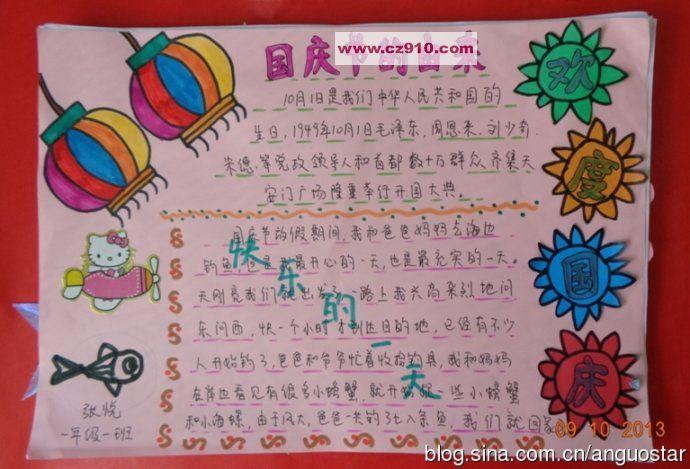 www.cz910.com
国庆节的由来
10月1日是我们中华人民共和国的
生日，1949年10月1日毛泽东，周恩来，刘少奇，
朱德，等党政领导人和首都数十万群众齐集天
安门广场隆重举行开国大典。
欢
度
国
庆
快乐的一天
国庆节放假期间，我和爸爸妈妈去海边
钓鱼，我最开心的一天，也是最充实的一天。
天刚亮我们就出发了一路上我兴高采烈地问
东问西，快一个小时才到达目的地，已经有不少
人开始钓了，爸爸和爷爷忙着收拾钓具，我和妈妈
在岸边看见有很多小螃蟹，就开始捉一些小螃蟹
和小海螺，由于风大，爸爸一共钓了七八条鱼，我们就回家
张悦
一年级一班
09 10 2013
blog.sina.com.cn/anguostar